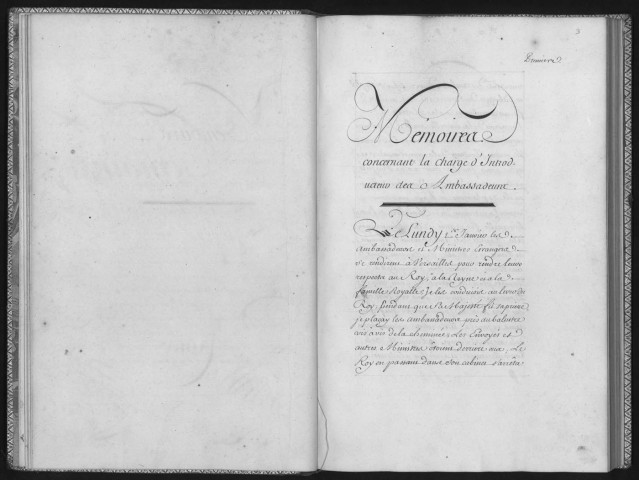 3
Memoires
concernant la charge d'Introd-
ucteur des Ambassadeurs.
Le Lundy 2.e Janvier les
Ambassadeurs et Ministres Etrangers
se rendirent à Versailles pour rendre leurs
respects au Roy, a la Reyne et a la
famille Royalle. Je les conduisis au lever du
Roy, Pendant que Sa Majesté fit sa priere
je plaçay les ambassadeurs près du balustre
vis a vis de la cheminée, Les Envoyés et
autres Ministres étoient derriere eux, Le
Roy en passant dans son cabinet s'arrêta